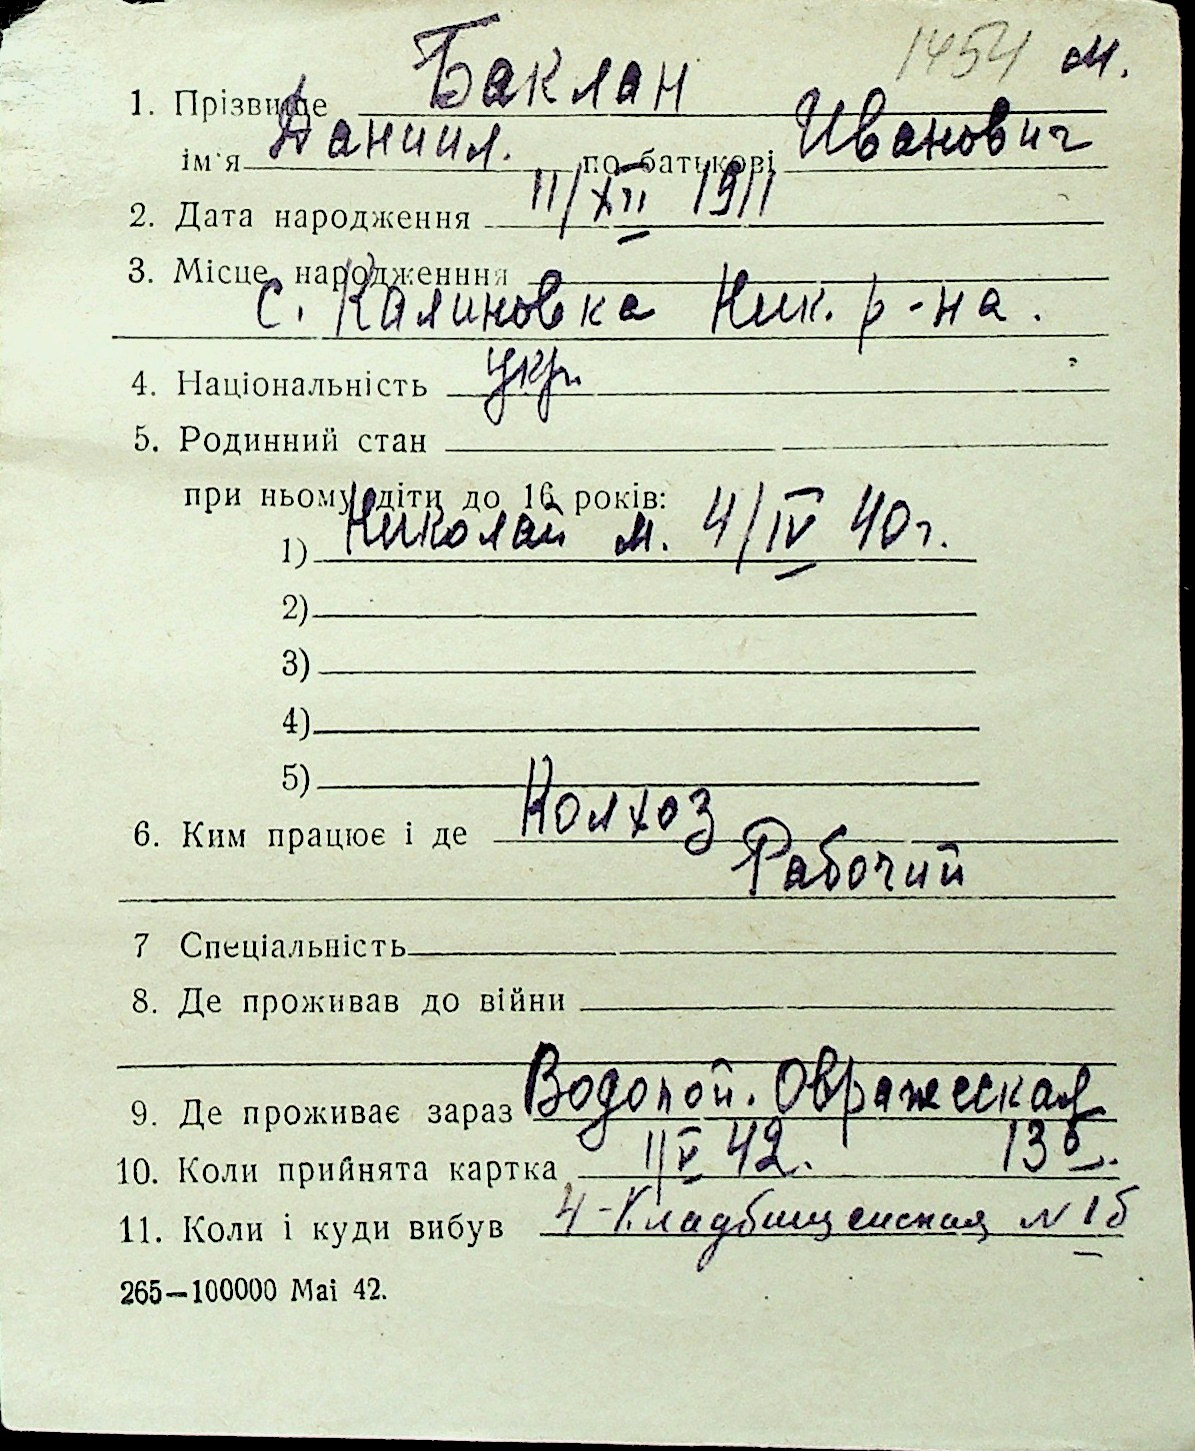 1454 м.
1. Прізвище Баклан
ім'я Даниил. по батькові Иванович
2. Дата народження 11/XII 1911
3. Місце народженння
с. Калиновка Ник. р-на.
4. Національність укр.
5. Родинний стан
при ньому діти до 16 років:
1) Николай м. 4/IV 40г.
2)
3)
4)
5)
6. Ким працює і де Колхоз
Рабочий
7 Спеціальність
8. Де проживав до війни
9. Де проживає зараз Водопой. Овражеская
10. Коли прийнята картка 11/V 42. 13
11. Коли і куди вибув 4-Кладбищенская N 1б
265—100000 Mai 42.